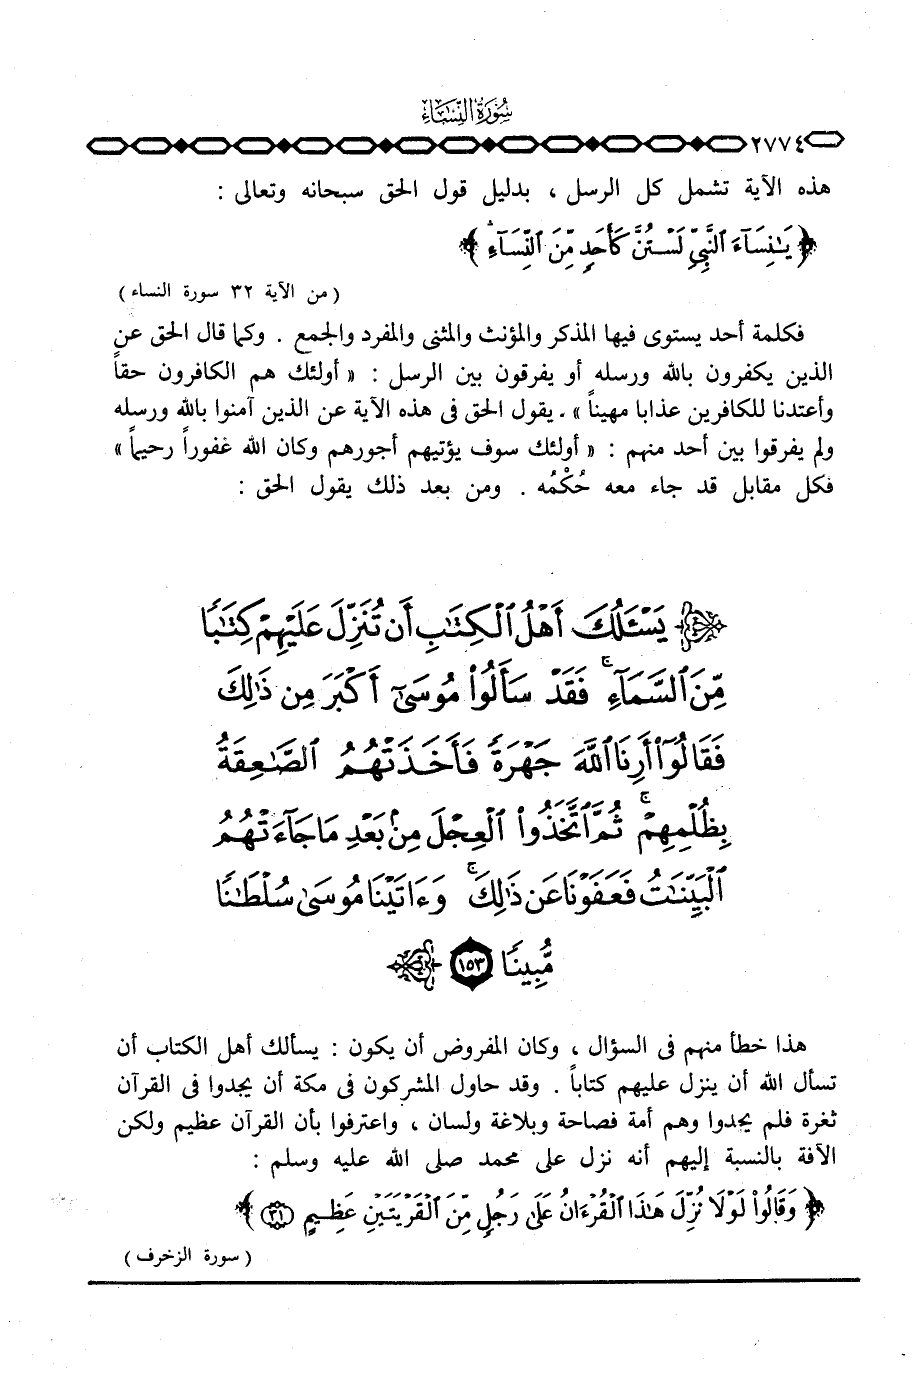 سُورَةُ النِّسَاءِ
٢٧٧٤
هذه الآية تشمل كل الرسل ، بدليل قول الحق سبحانه وتعالى :
﴿ يَٰنِسَآءَ ٱلنَّبِىِّ لَسْتُنَّ كَأَحَدٍ مِّنَ ٱلنِّسَآءِ ۚ ﴾
( من الآية ٣٢ سورة النساء )
فكلمة أحد يستوى فيها المذكر والمؤنث والمثنى والمفرد والجمع . وكما قال الحق عن
الذين يكفرون بالله ورسله أو يفرقون بين الرسل : « أولئك هم الكافرون حقاً
وأعتدنا للكافرين عذابا مهيناً » . يقول الحق فى هذه الآية عن الذين آمنوا بالله ورسله
ولم يفرقوا بين أحد منهم : « أولئك سوف يؤتيهم أجورهم وكان الله غفوراً رحيما »
فكل مقابل قد جاء معه حُكْمُه . ومن بعد ذلك يقول الحق :
يَسْـَٔلُكَ أَهْلُ ٱلْكِتَٰبِ أَن تُنَزِّلَ عَلَيْهِمْ كِتَٰبًا
مِّنَ ٱلسَّمَآءِ ۚ فَقَدْ سَأَلُوا۟ مُوسَىٰٓ أَكْبَرَ مِن ذَٰلِكَ
فَقَالُوٓا۟ أَرِنَا ٱللَّهَ جَهْرَةً فَأَخَذَتْهُمُ ٱلصَّٰعِقَةُ
بِظُلْمِهِمْ ۚ ثُمَّ ٱتَّخَذُوا۟ ٱلْعِجْلَ مِنۢ بَعْدِ مَا جَآءَتْهُمُ
ٱلْبَيِّنَٰتُ فَعَفَوْنَا عَن ذَٰلِكَ ۚ وَءَاتَيْنَا مُوسَىٰ سُلْطَٰنًا
مُّبِينًا ١٥٣
هذا خطأ منهم فى السؤال ، وكان المفروض أن يكون : يسألك أهل الكتاب أن
تسأل الله أن ينزل عليهم كتاباً . وقد حاول المشركون فى مكة أن يجدوا فى القرآن
ثغرة فلم يجدوا وهم أمة فصاحة وبلاغة ولسان ، واعترفوا بأن القرآن عظيم ولكن
الآفة بالنسبة إليهم أنه نزل على محمد صلى الله عليه وسلم :
﴿ وَقَالُوا۟ لَوْلَا نُزِّلَ هَٰذَا ٱلْقُرْءَانُ عَلَىٰ رَجُلٍ مِّنَ ٱلْقَرْيَتَيْنِ عَظِيمٍ ٣١ ﴾
( سورة الزخرف )